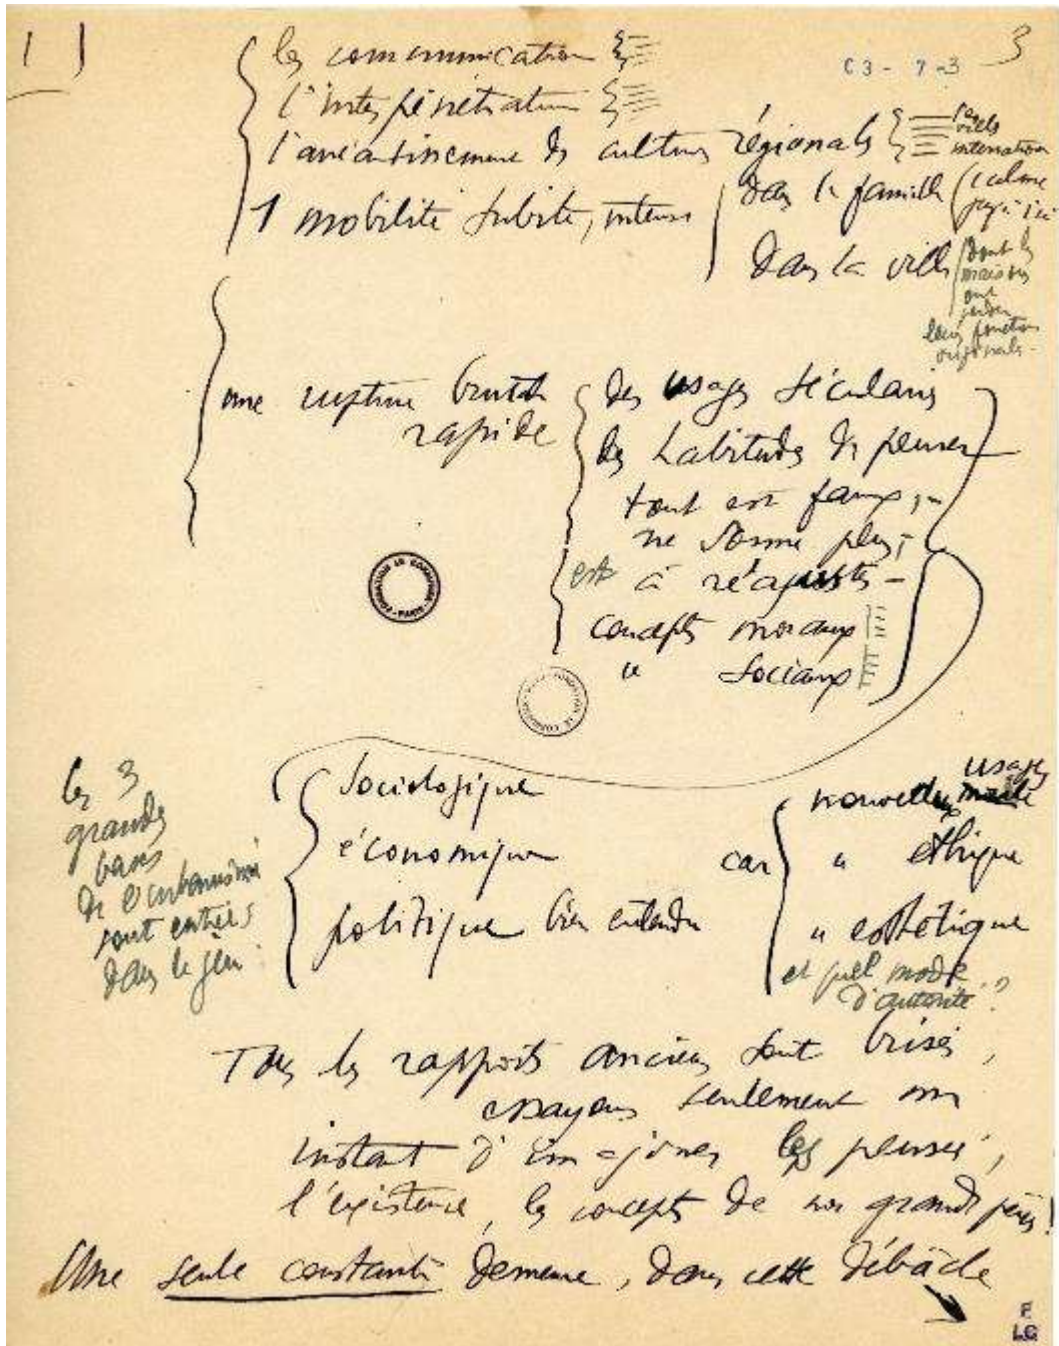 1)
3
C3-7-3
les communication
l'interpénétration
l'anéantissement des cultures régionales
les villes internation
1 mobilité subite, intense
dans la famille (calme jusqu'ici
dans la ville dont les maisons ont perdu leurs fonctions originales -
une rupture brutale
rapide
des usages séculaires
des habitudes de penser
tout est faux,
ne donne plus,
est à réajuster -
concepts moraux
" sociaux
FONDATION LE CORBUSIER PARIS
les 3
grandes
bases
de l'urbanisme
sont entrées
dans le jeu
sociologique
économique
politique bien entendu
car
nouveaux usages
" éthique
" esthétique
et quel mode
d'autorité ?
Tous les rapports anciens sont brisés,
essayons seulement un
instant d'imaginer les pensées,
l'existence, les concepts de nos grands pères!
Une seule constante demeure, dans cette débâcle
F
LC